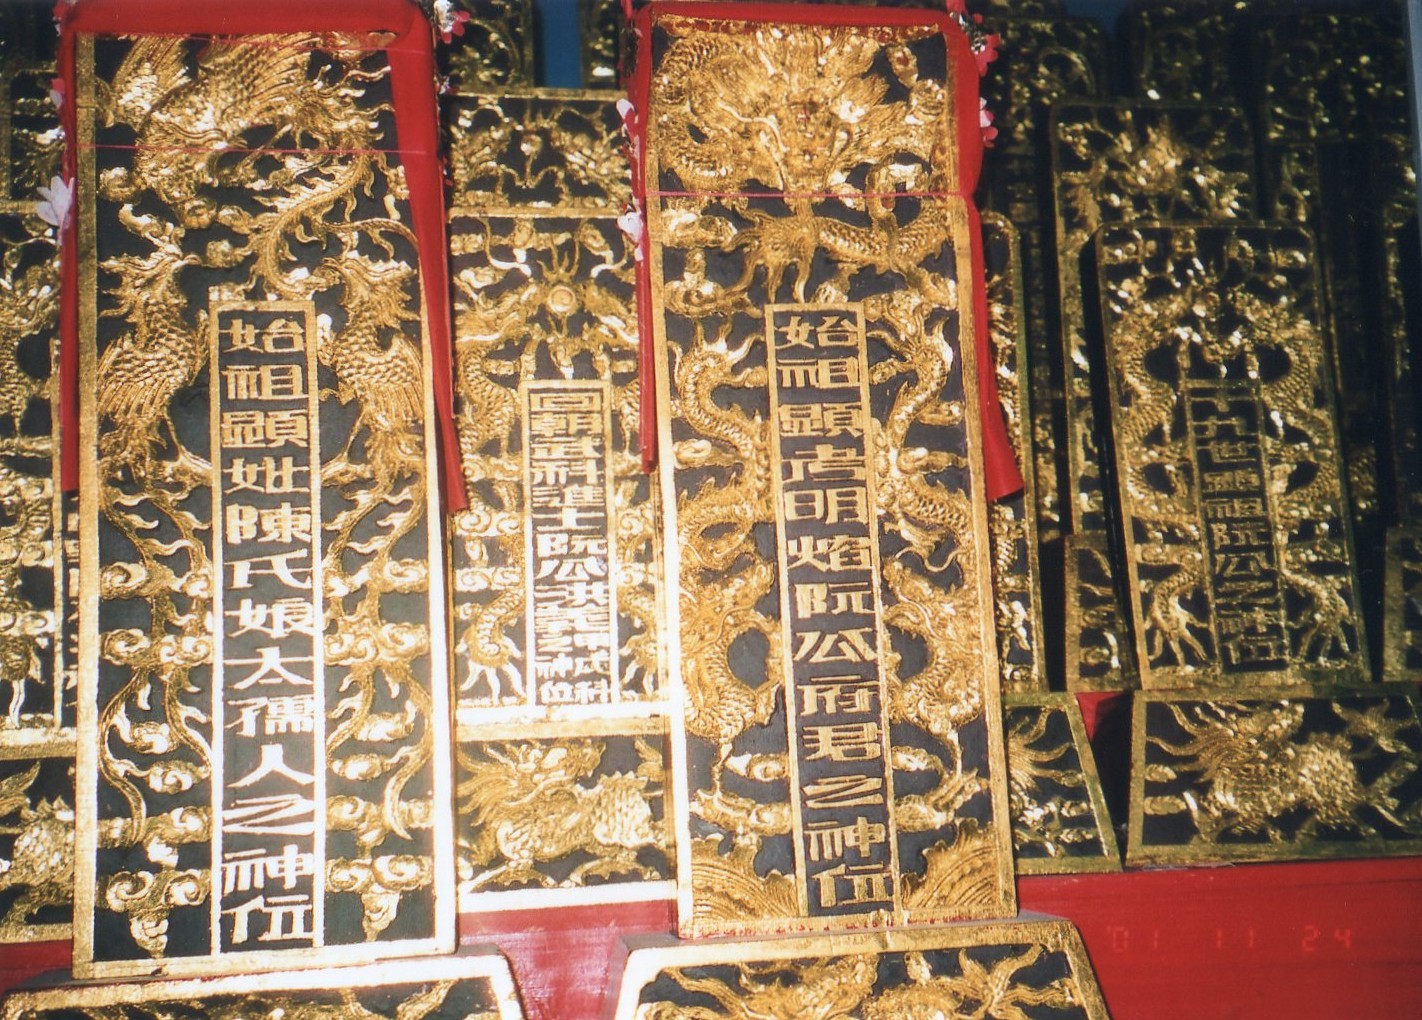 始祖顯考明焰阮公府君之神位
始祖顯妣陳氏娘太孺人之神位
阮公洪義
神位
十九世 祖阮公之神位
'01 11 24